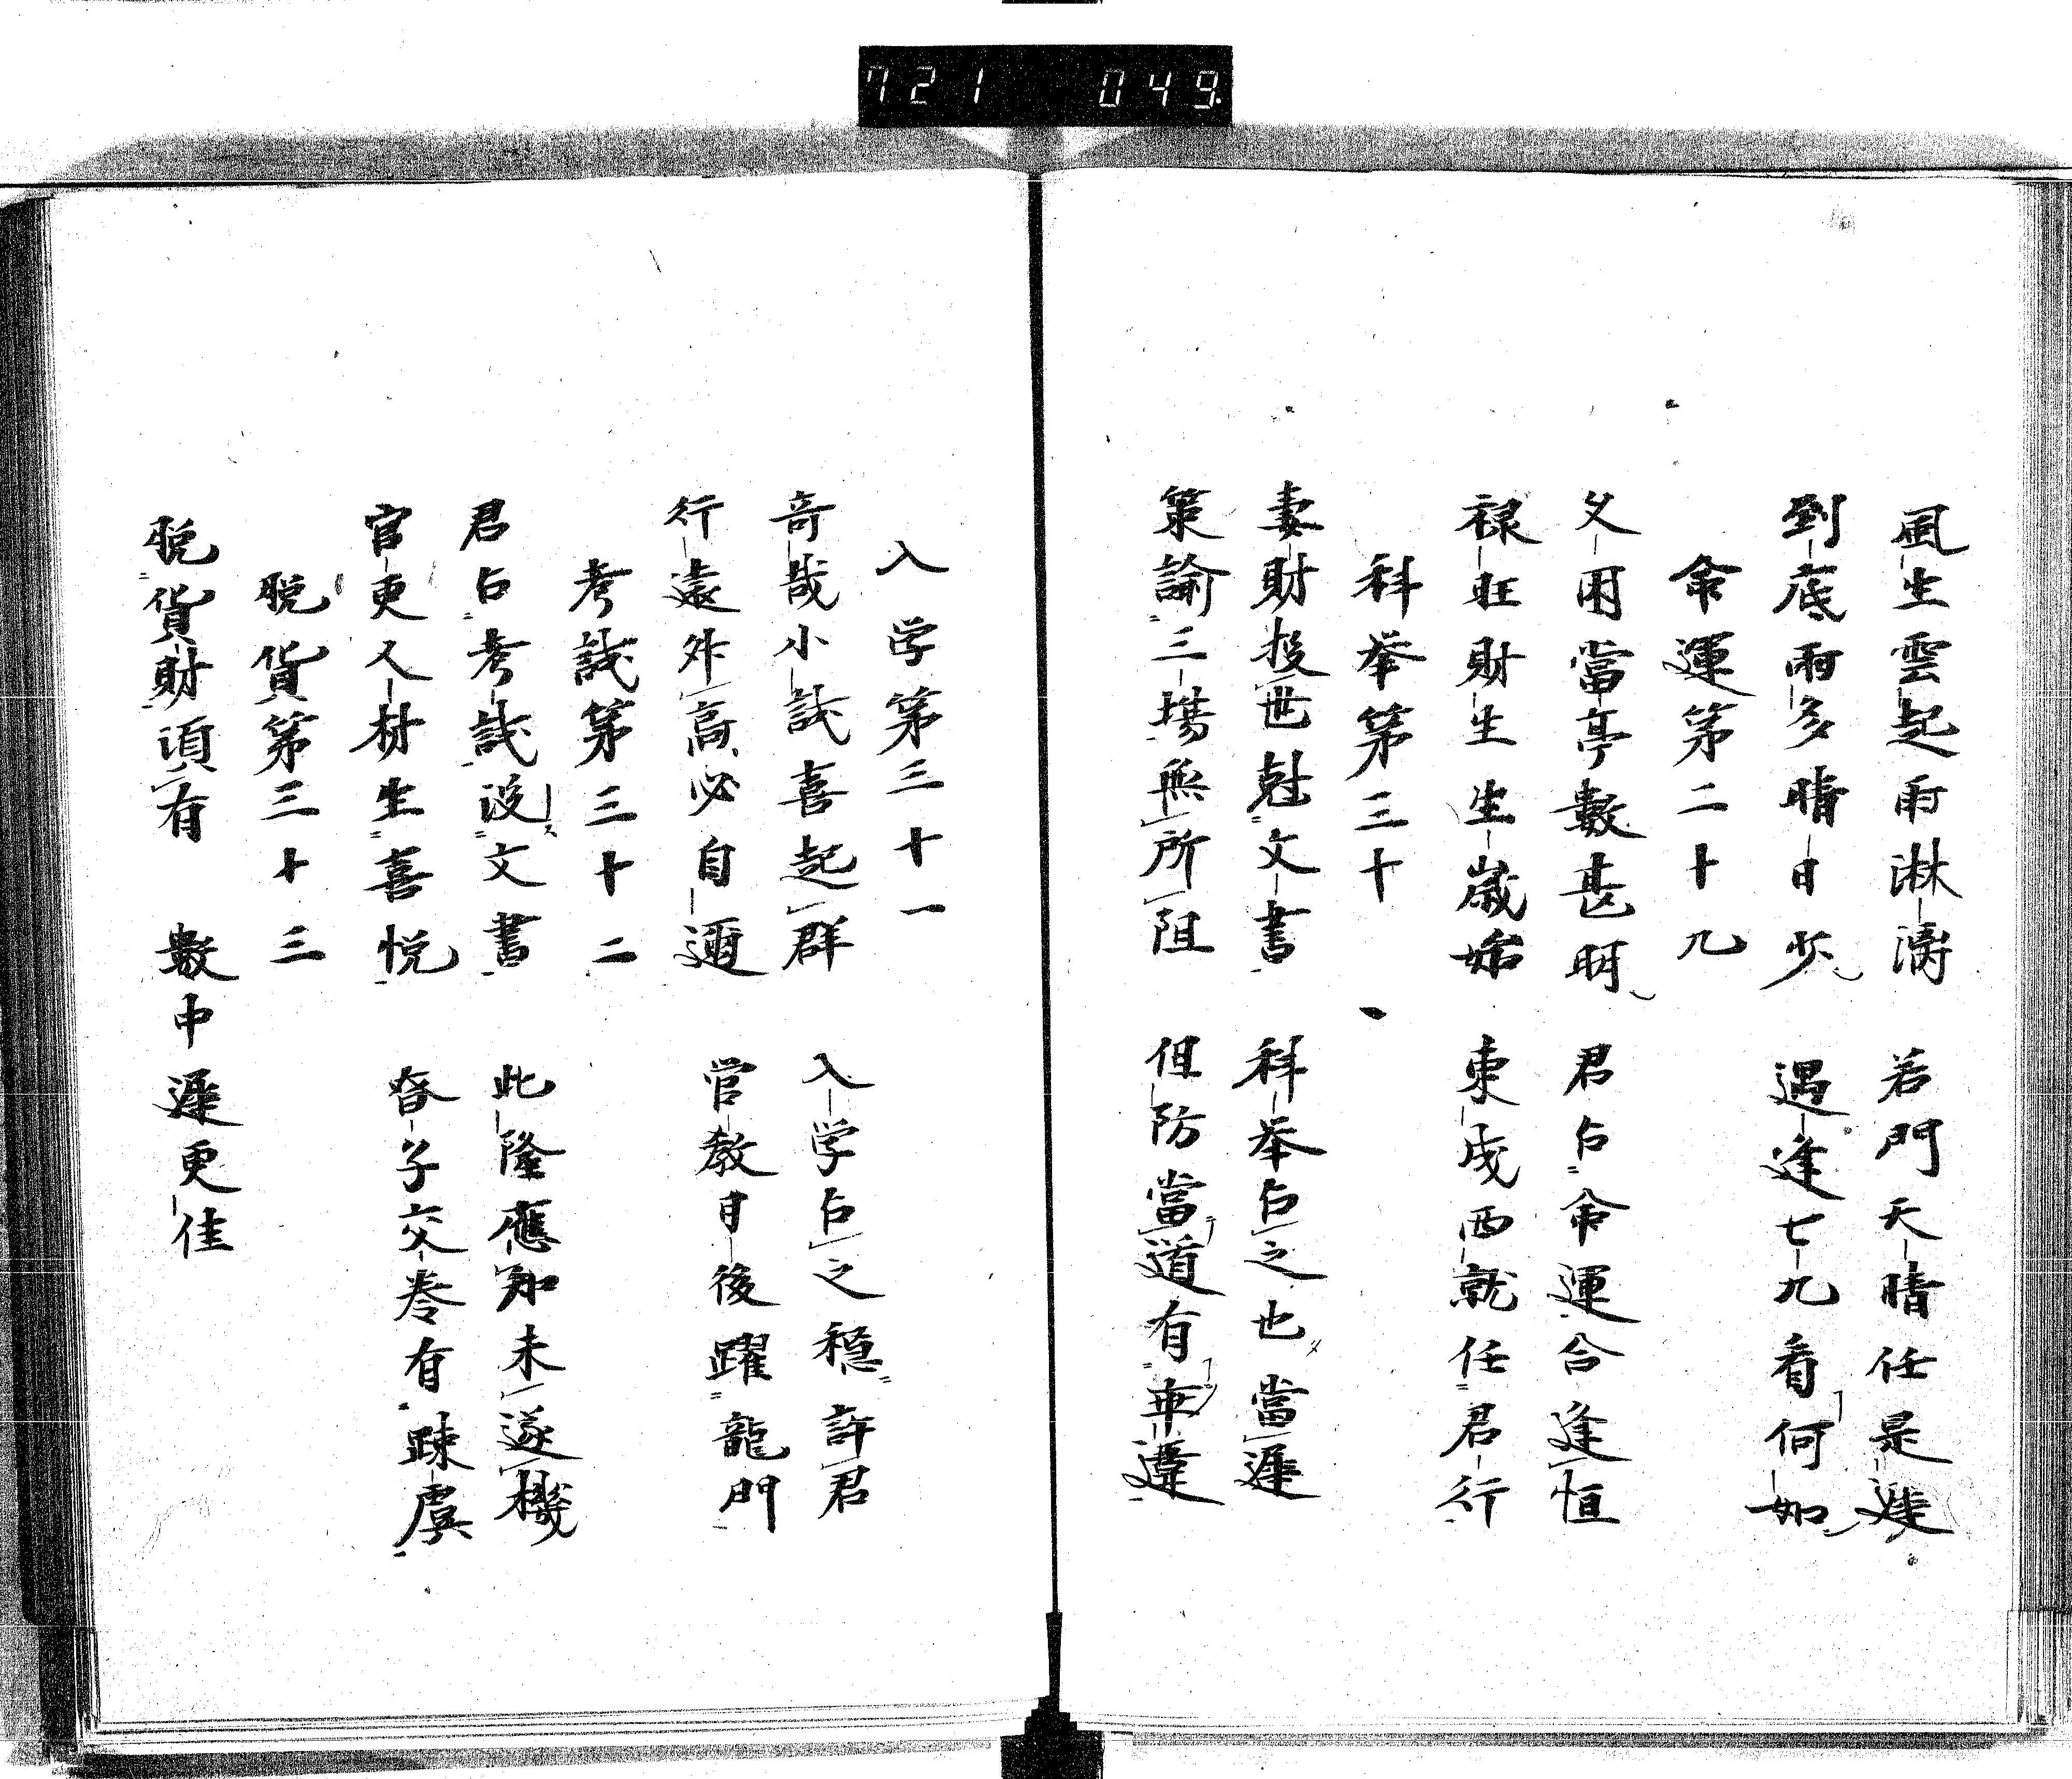 721 049
風生雲起雨淋漓 若門天晴任是遅
到底雨多晴日少 遇逢七九看何如
命運第二十九
父用當亭數甚明 君占命運合逢恒
禄旺財生生歳始 東成西就任君行
科挙第三十
妻財投世尅文書 科挙占之也當遅
策論三場無所阻 但防當道有乖違
入学第三十一
奇哉小試喜起群 入学占之穏許君
行遠外高必自邇 官教日後躍龍門
考試第三十二
君占考試没文書 此隆應知未遂機
官更又材生喜悦 春子交巻有疎虞
脱貨第三十三
脱貨財須有 數中遅更佳